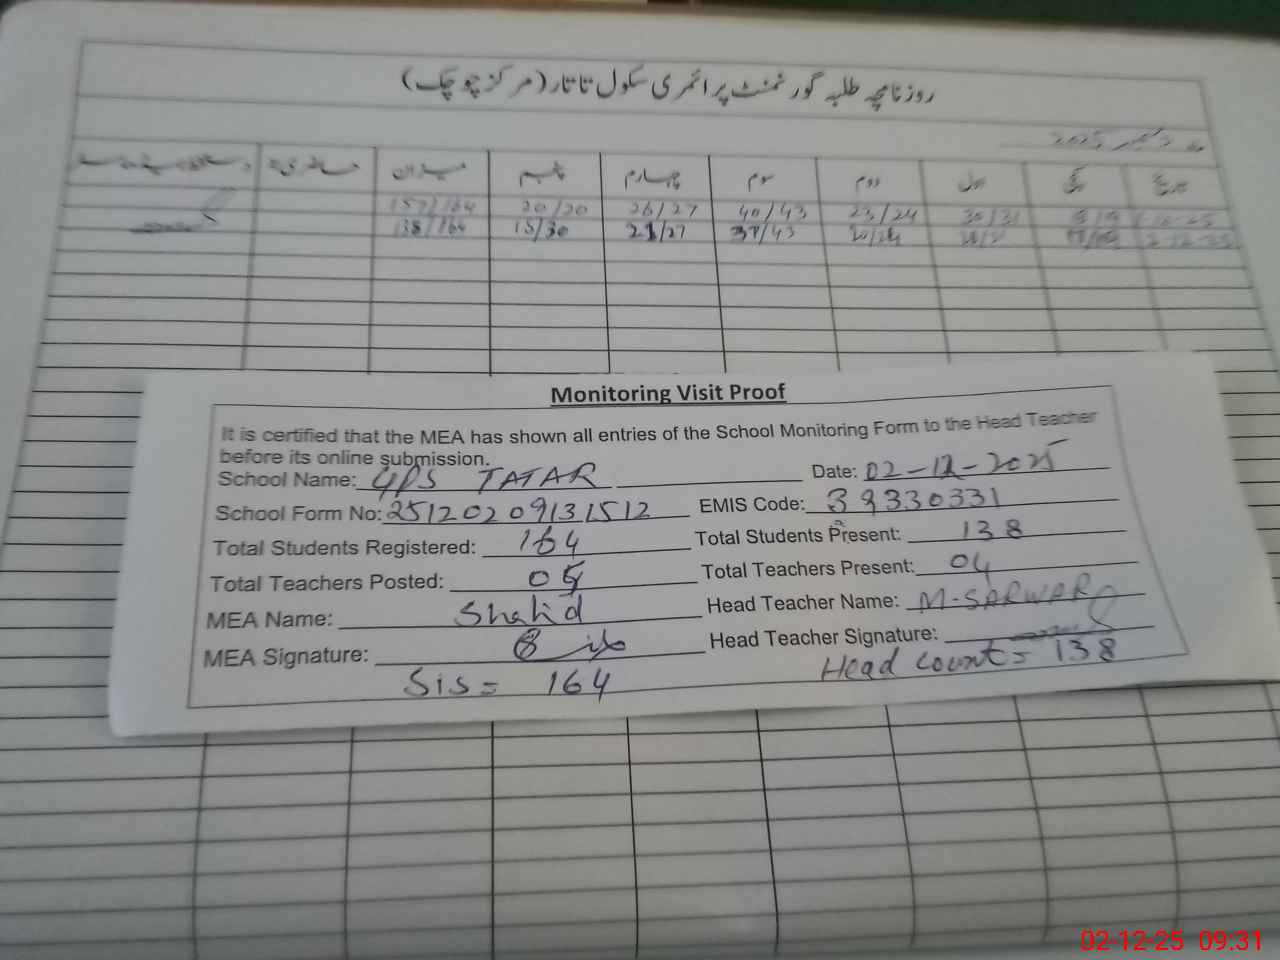 روزنامچہ طلبہ گورنمنٹ پرائمری سکول تاتار (مرکز چوچک)
ماہ دسمبر 2025
تاریخ اول دوم سوم چہارم پنجم میزان
1-12-25 30/31 23/24 40/43 26/27 20/20 157/164
2-12-25 20/24 37/43 21/27 15/30 138/164
Monitoring Visit Proof
It is certified that the MEA has shown all entries of the School Monitoring Form to the Head Teacher
before its online submission.
School Name: GPS TATAR Date: 02-12-2025
School Form No: 25120209131512 EMIS Code: 39330331
Total Students Registered: 164 Total Students Present: 138
Total Teachers Posted: 05 Total Teachers Present: 04
MEA Name: Shahid Head Teacher Name: M-SARWAR
MEA Signature: Head Teacher Signature:
Sis = 164 Head count = 138
02-12-25 09:31